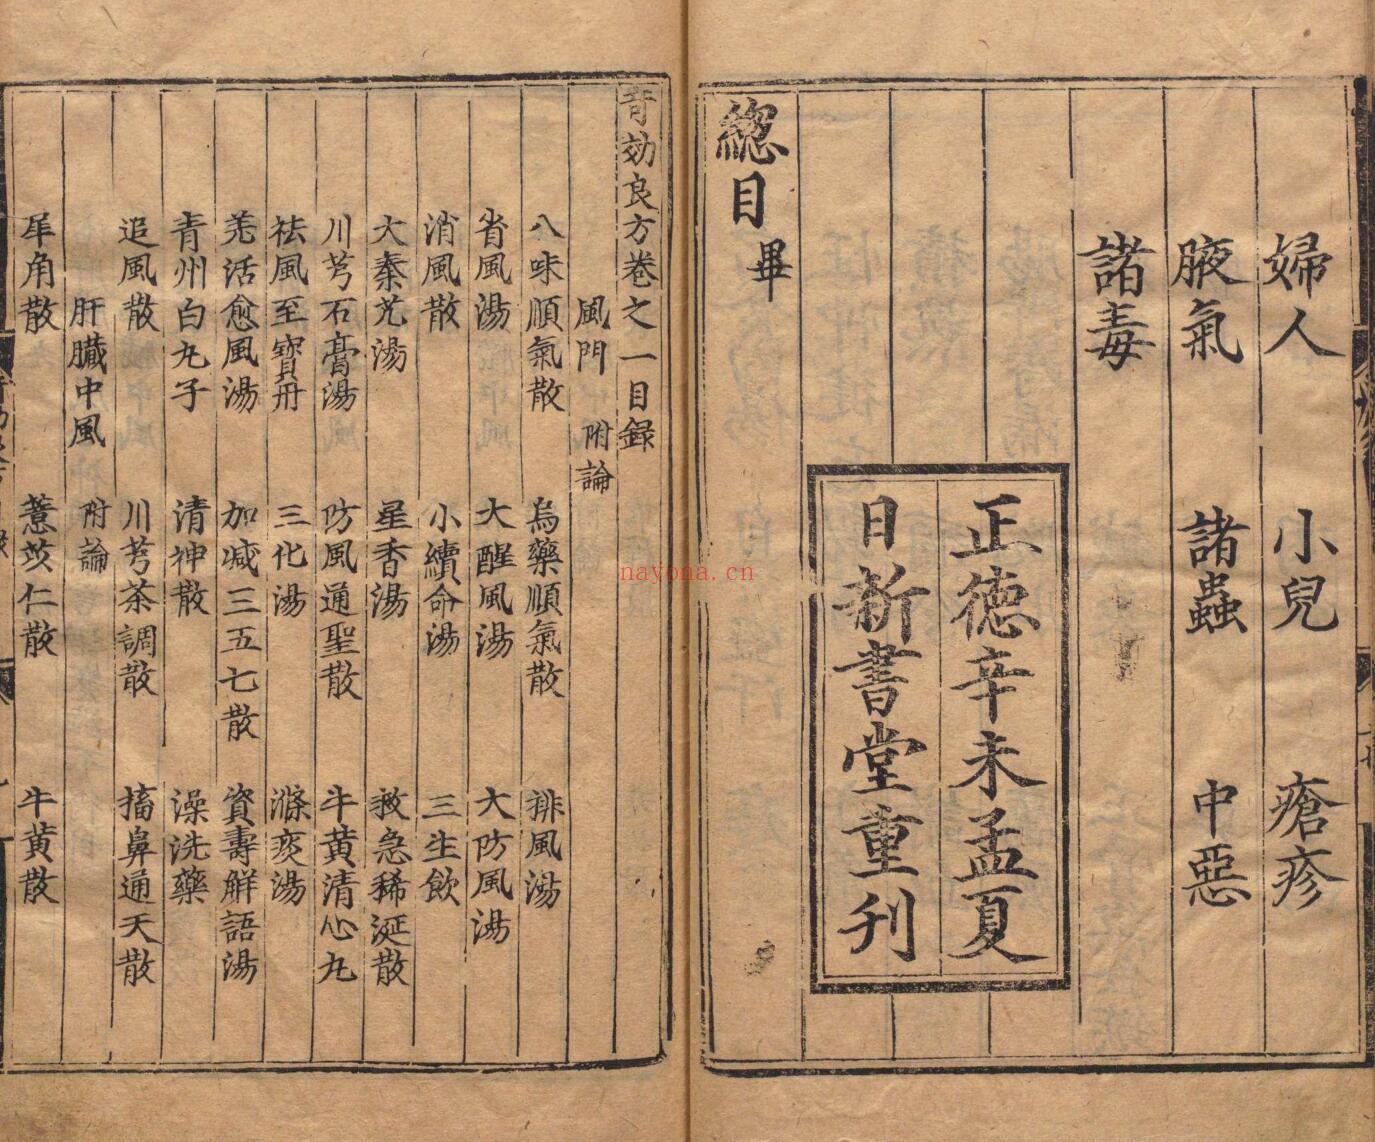 婦人 小兒 瘡疹
腋氣 諸蟲 中惡
諸毒
正德辛未孟夏
日新書堂重刊
緫目畢
奇効良方卷之一目録
風門 附論
八味順氣散 烏藥順氣散 排風湯
省風湯 大醒風湯 大防風湯
消風散 小續命湯 三生飲
大秦艽湯 星香湯 救急稀涎散
川芎石膏湯 防風通聖散 牛黄清心丸
祛風至寶丹 三化湯 滌痰湯
羌活愈風湯 加减三五七散 資壽解語湯
青州白丸子 清神散 澡洗藥
追風散 川芎茶調散 搐鼻通天散
肝臟中風 附論
犀角散 薏苡仁散 牛黄散
nayona.cn